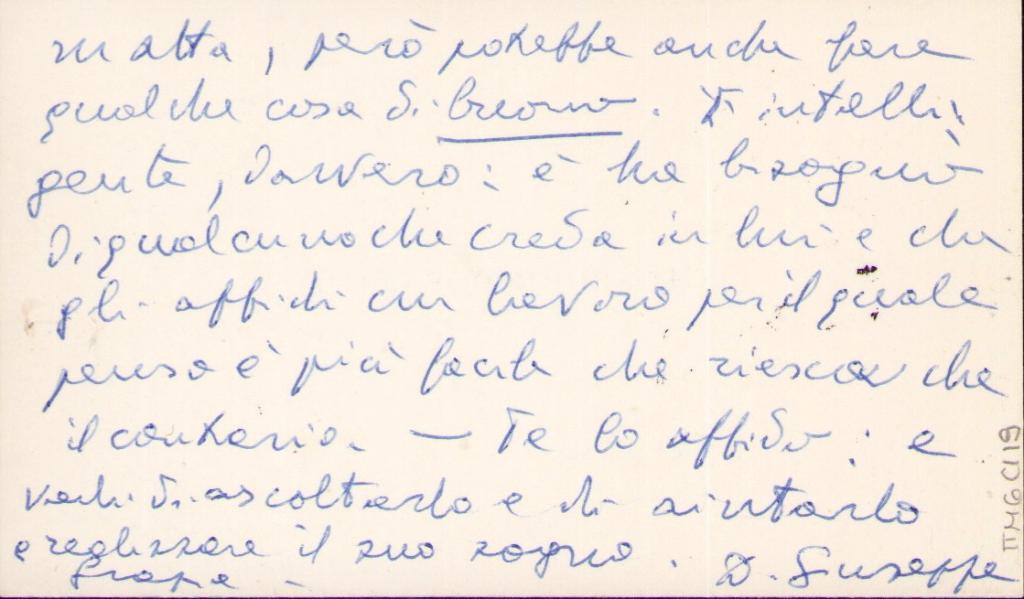 matta, però potrebbe anche fare
qualche cosa di buono. È intelli-
gente, davvero: e ha bisogno
di qualcuno che creda in lui e che
gli affidi un lavoro per il quale
penso è più facile che riesca che
il contrario. — Te lo affido: e
vedi di ascoltarlo e di aiutarlo
a realizzare il suo sogno.
Grazie - D. Giuseppe
ΠM6C/19